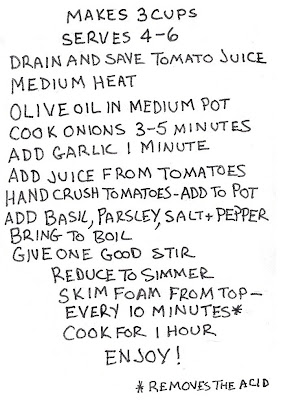 MAKES 3 CUPS
SERVES 4-6
DRAIN AND SAVE TOMATO JUICE
MEDIUM HEAT
OLIVE OIL IN MEDIUM POT
COOK ONIONS 3-5 MINUTES
ADD GARLIC 1 MINUTE
ADD JUICE FROM TOMATOES
HAND CRUSH TOMATOES-ADD TO POT
ADD BASIL, PARSLEY, SALT + PEPPER
BRING TO BOIL
GIVE ONE GOOD STIR
REDUCE TO SIMMER
SKIM FOAM FROM TOP-
EVERY 10 MINUTES*
COOK FOR 1 HOUR
ENJOY!
* REMOVES THE ACID